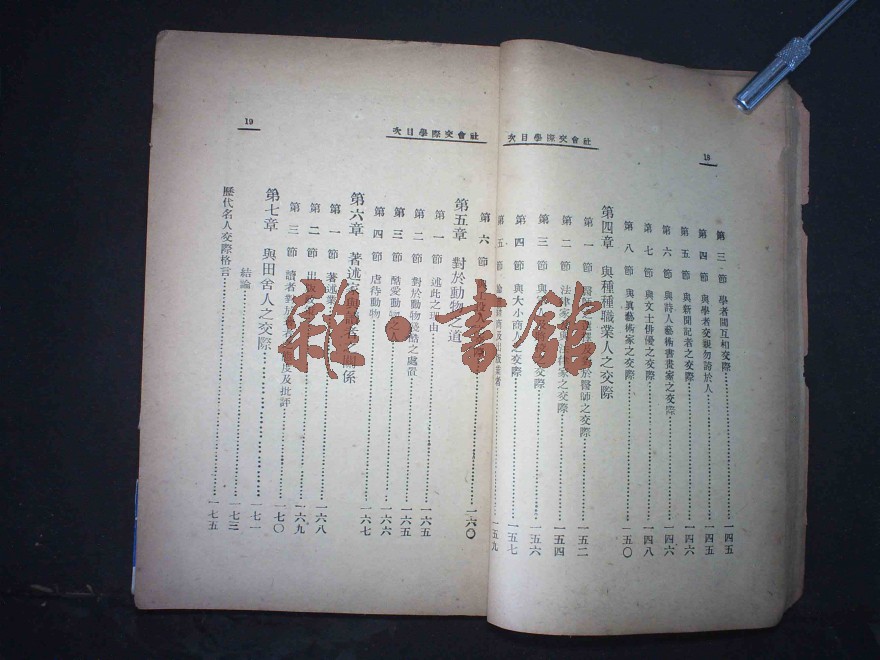 18
社會交際學目次
第三節 學者間互相交際 一四五
第四節 與學者交親勿誇於人 一四五
第五節 與新聞記者之交際 一四六
第六節 與詩人藝術書畫家之交際 一四六
第七節 與文士俳優之交際 一四八
第八節 與眞藝術家之交際 一五〇
第四章 與種種職業人之交際
第一節 醫 於醫師之交際 一五二
第二節 法律家 家之交際 一五四
第三節 與 交際 一五六
第四節 與大小商 之交際 一五七
第五節 一五九
第六節
社會交際學目次
19
第五章 對於動物之道 一六〇
第一節 述此之理由 一六五
第二節 對於動物 酷之處置 一六五
第三節 酷愛動物 一六六
第四節 虐待動物 一六七
第六章 著述家 關係
第一節 著述業 一六八
第二節 出版 一六九
第三節 讀者對於 度及批評 一七〇
第七章 與田舍人之交際 一七一
結論 一七三
歷代名人交際格言 一七五
雜·書館